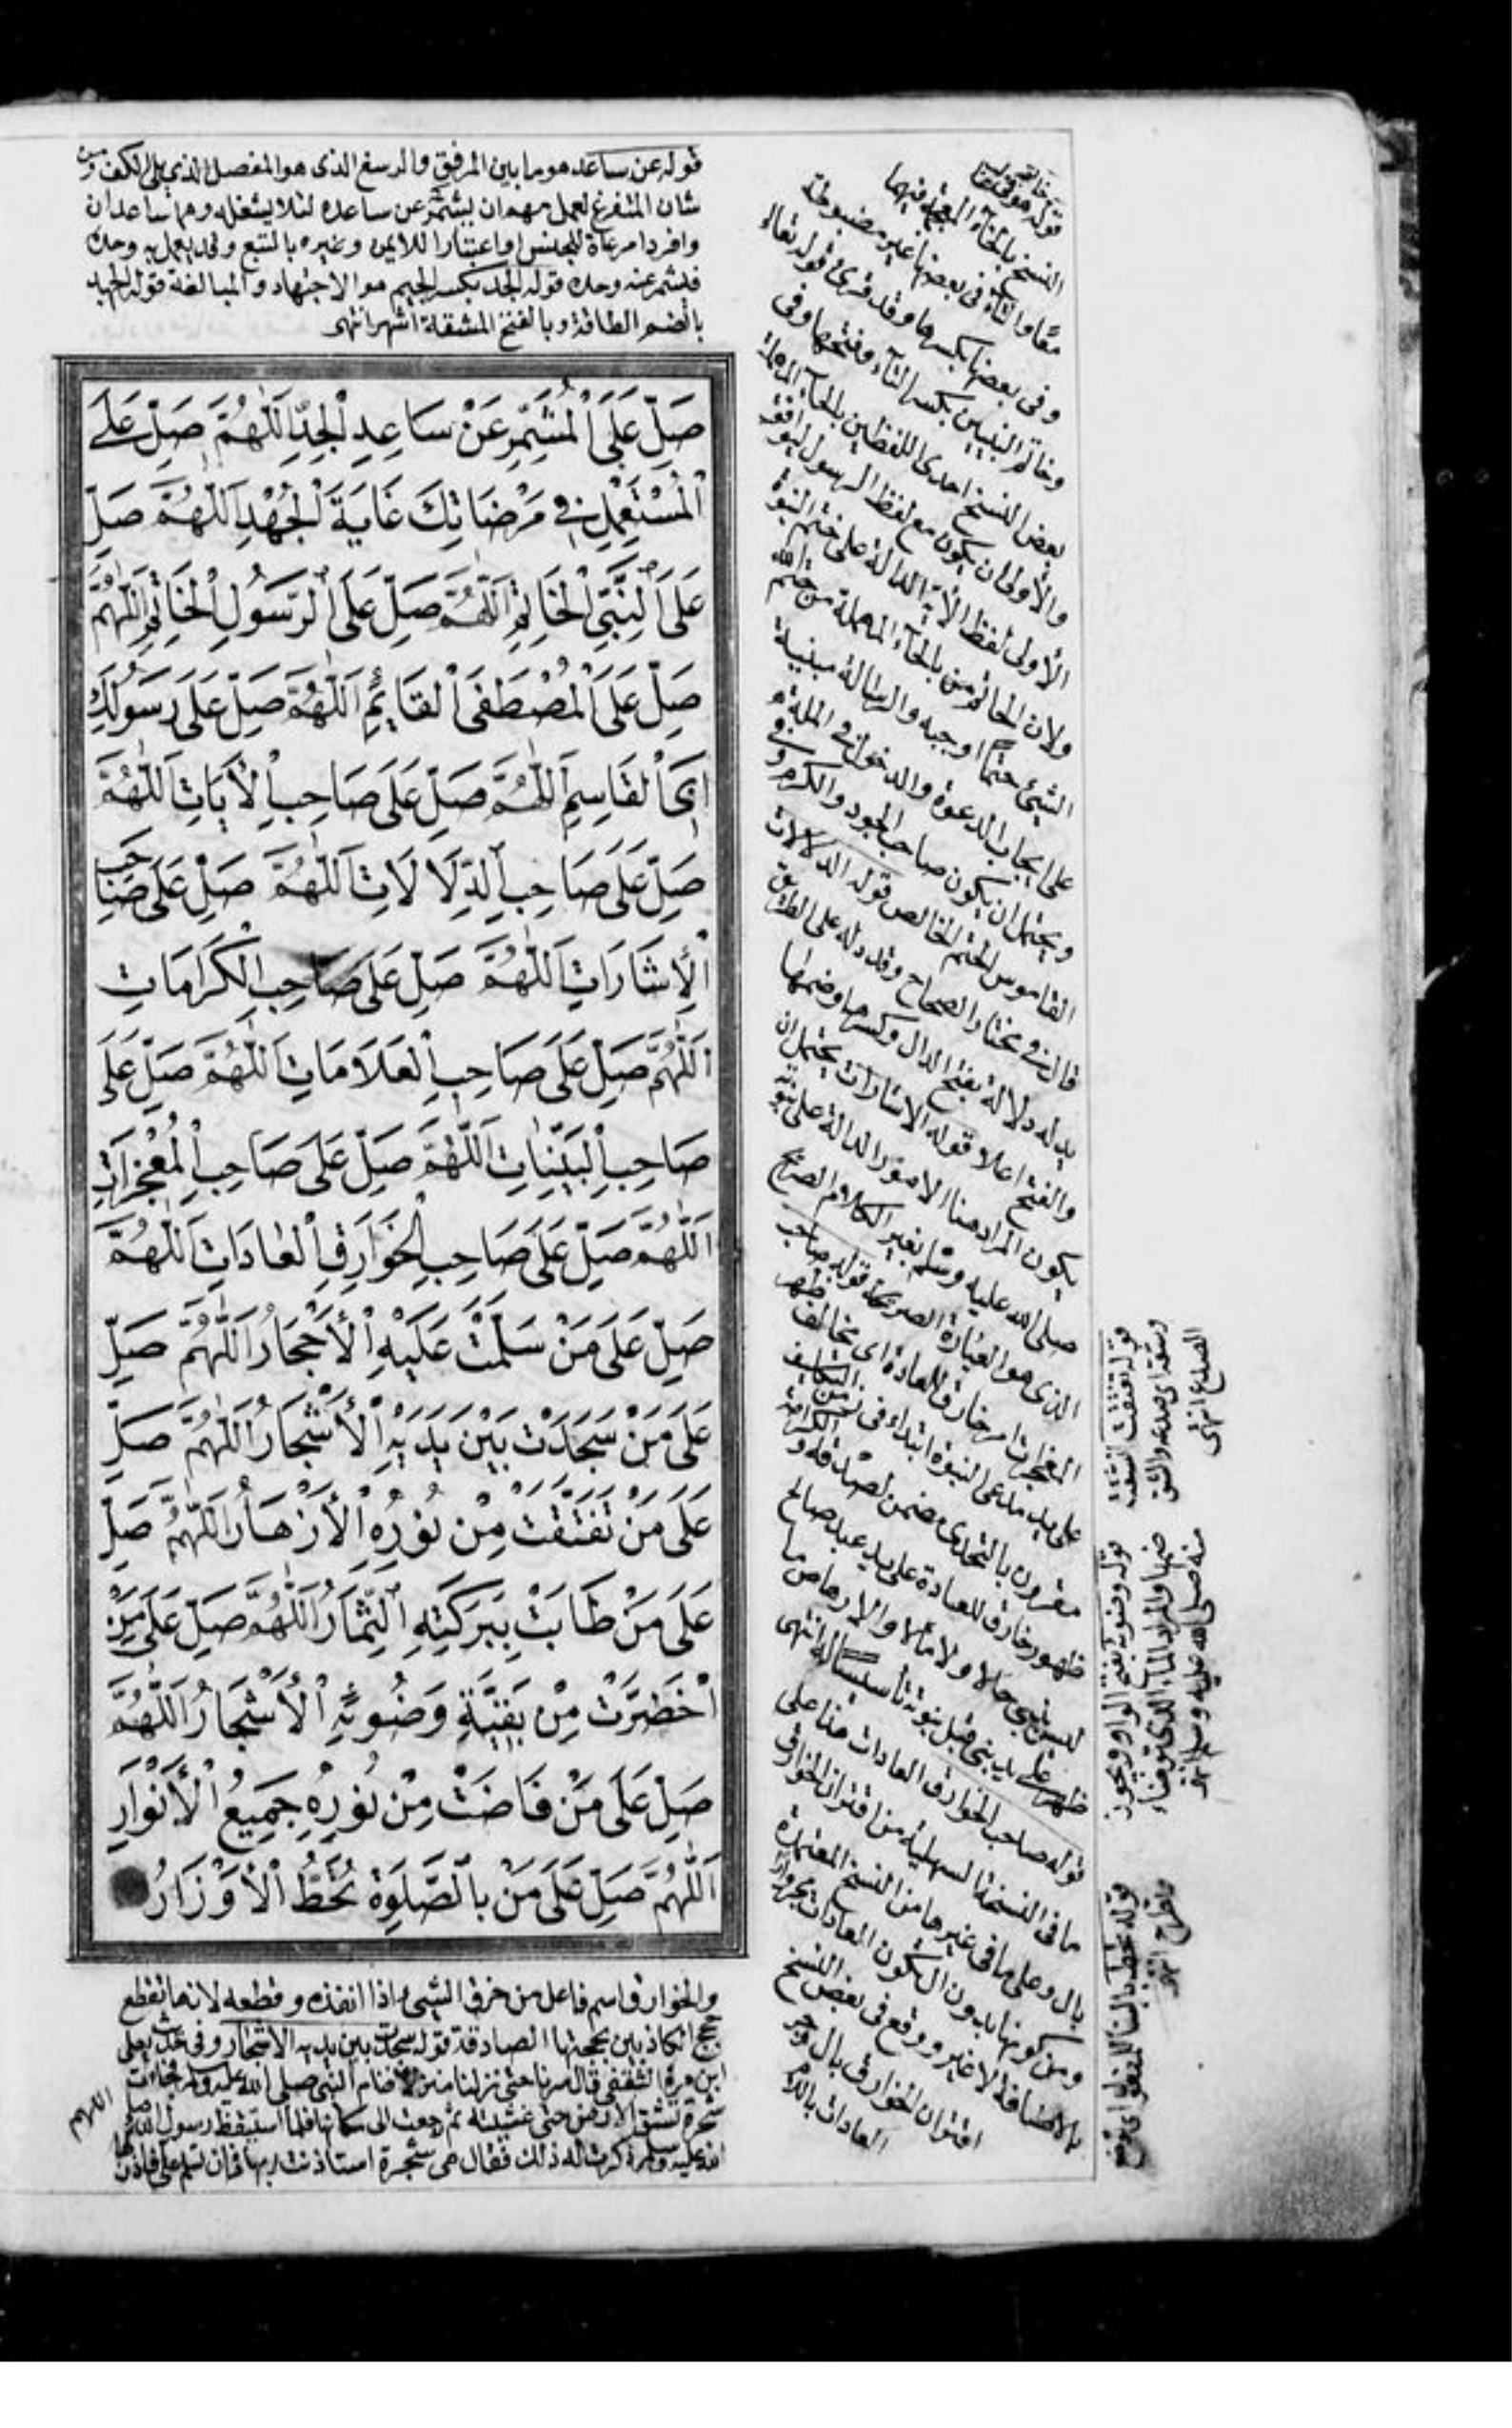 قوله عن ساعد هو ما بين المرفق والرسغ الذى هو المفصل الذى يلى الكف ومن
شان المتفرغ لعمل مهم ان يشمر عن ساعده لئلا يشغله وهما ساعدان
وافرد مراعاة للجنس او اعتبارا للايمن وغيره بالتبع وقد يعمل به وحده
فيشمر عنه وحده قوله الجد بكسر الجيم هو الاجتهاد والمبالغة قوله الجهد
بالضم الطاقة وبالفتح المشقة اشهر انتهى
صَلِّ عَلَى الْمُشَمِّرِ عَنْ سَاعِدِ الْجِدِّ اَللّٰهُمَّ صَلِّ عَلَى
الْمُسْتَعْمِلِ فِى مَرْضَاتِكَ غَايَةَ الْجُهْدِ اَللّٰهُمَّ صَلِّ
عَلَى النَّبِىِّ الْخَاتِمِ اَللّٰهُمَّ صَلِّ عَلَى الرَّسُولِ الْخَاتِمِ اَللّٰهُمَّ
صَلِّ عَلَى الْمُصْطَفَى الْقَائِمِ اَللّٰهُمَّ صَلِّ عَلَى رَسُولِكَ
اَبِى الْقَاسِمِ اَللّٰهُمَّ صَلِّ عَلَى صَاحِبِ الْاٰيَاتِ اَللّٰهُمَّ
صَلِّ عَلَى صَاحِبِ الدِّلَالَاتِ اَللّٰهُمَّ صَلِّ عَلَى صَاحِبِ
الْاِشَارَاتِ اَللّٰهُمَّ صَلِّ عَلَى صَاحِبِ الْكَرَامَاتِ
اَللّٰهُمَّ صَلِّ عَلَى صَاحِبِ الْعَلَامَاتِ اَللّٰهُمَّ صَلِّ عَلَى
صَاحِبِ الْبَيِّنَاتِ اَللّٰهُمَّ صَلِّ عَلَى صَاحِبِ الْمُعْجِزَاتِ
اَللّٰهُمَّ صَلِّ عَلَى صَاحِبِ الْخَوَارِقِ الْعَادَاتِ اَللّٰهُمَّ
صَلِّ عَلَى مَنْ سَلَّمَتْ عَلَيْهِ الْاَحْجَارُ اَللّٰهُمَّ صَلِّ
عَلَى مَنْ سَجَدَتْ بَيْنَ يَدَيْهِ الْاَشْجَارُ اَللّٰهُمَّ صَلِّ
عَلَى مَنْ تَفَتَّقَتْ مِنْ نُورِهِ الْاَزْهَارُ اَللّٰهُمَّ صَلِّ
عَلَى مَنْ طَابَتْ بِبَرَكَتِهِ الثِّمَارُ اَللّٰهُمَّ صَلِّ عَلَى مَنْ
اخْضَرَّتْ مِنْ بَقِيَّةِ وَضُوئِهِ الْاَشْجَارُ اَللّٰهُمَّ
صَلِّ عَلَى مَنْ فَاضَتْ مِنْ نُورِهِ جَمِيعُ الْاَنْوَارِ
اَللّٰهُمَّ صَلِّ عَلَى مَنْ بِالصَّلٰوةِ تُحَطُّ الْاَوْزَارُ
والخوارق اسم فاعل من خرق الشيئ اذا انفذه وقطعه لانها تقطع
حجج الكاذبين بحجتها الصادقة قوله سجدت بين يديه الاشجار وفى حديث يعلى
ابن مرة الثقفى قال سرنا حتى نزلنا منزلا فنام النبى صلى الله عليه وسلم فجاءت
شجرة تشق الارض حتى غشيته ثم رجعت الى مكانها فلما استيقظ رسول الله صلى
الله عليه وسلم ذكرت له ذلك فقال هى شجرة استاذنت ربها فى ان تسلم على فاذن لها
اللهم
النسخ بالخاء المعجمة فيهما
معًا والتاء فى بعضها غير مضبوطة
وفى بعضها بكسرها وقد قرئ قوله تعالى
وخاتم النبيين بكسر التاء وفتحها وفى
بعض النسخ احدى اللفظين بالحاء المهملة
والاولى ان يكون مع لفظ الرسول ليوافق
الاولى لفظ الاية الدالة على ختم النبوة
ولان الحاتم من بالحاء المهملة من حتم الله
الشيئ حتمًا اوجبه والرسالة مبنية
على ايجاب الدعوة والدخول فى الملة
ويحتمل ان يكون صاحب الجود والكرم وفى
القاموس الحتم الخالص قوله الدلالات
قال فى مختار الصحاح وقد دله على الطريق
يدله دلالة بفتح الدال وكسرها وضمها
والفتح اعلا قوله الاشارات يحتمل ان
يكون المراد هنا الامور الدالة على نبوته
صلى الله عليه وسلم بغير الكلام الصريح
الذى هو العبارة الصريحة قوله صاحب
المعجزات امر خارق للعادة اى يخالف ظهر
على يد مدعى النبوة ابتداء فى زمن التكليف
مقرون بالتحدى يتضمن لصدقه والكرامة
ظهور خارق للعادة على يد عبد صالح
ليس بنبى حالا ولا مآلا والارهاص ما
ظهر على يد نبى قبل نبوته تأسيسًا له انتهى
قوله صاحب الخوارق العادات هنا على
ما فى النسخة السهلية من اقتران الخوارق
بال وعلى ما فى غيرها من النسخ المعتمدة
ومن كونها بدون ال يكون العادات مجرور
بالاضافة لا غير ووقع فى بعض النسخ
اقتران الخوارق بال وجر
العادات باللام
قوله تفتقت انشقت
الصداع انتهى
قوله وضوئه بفتح الواو ويجوز
ضمها والمراد الماء الذى توضاء
منه صلى الله عليه وسلم انتهى